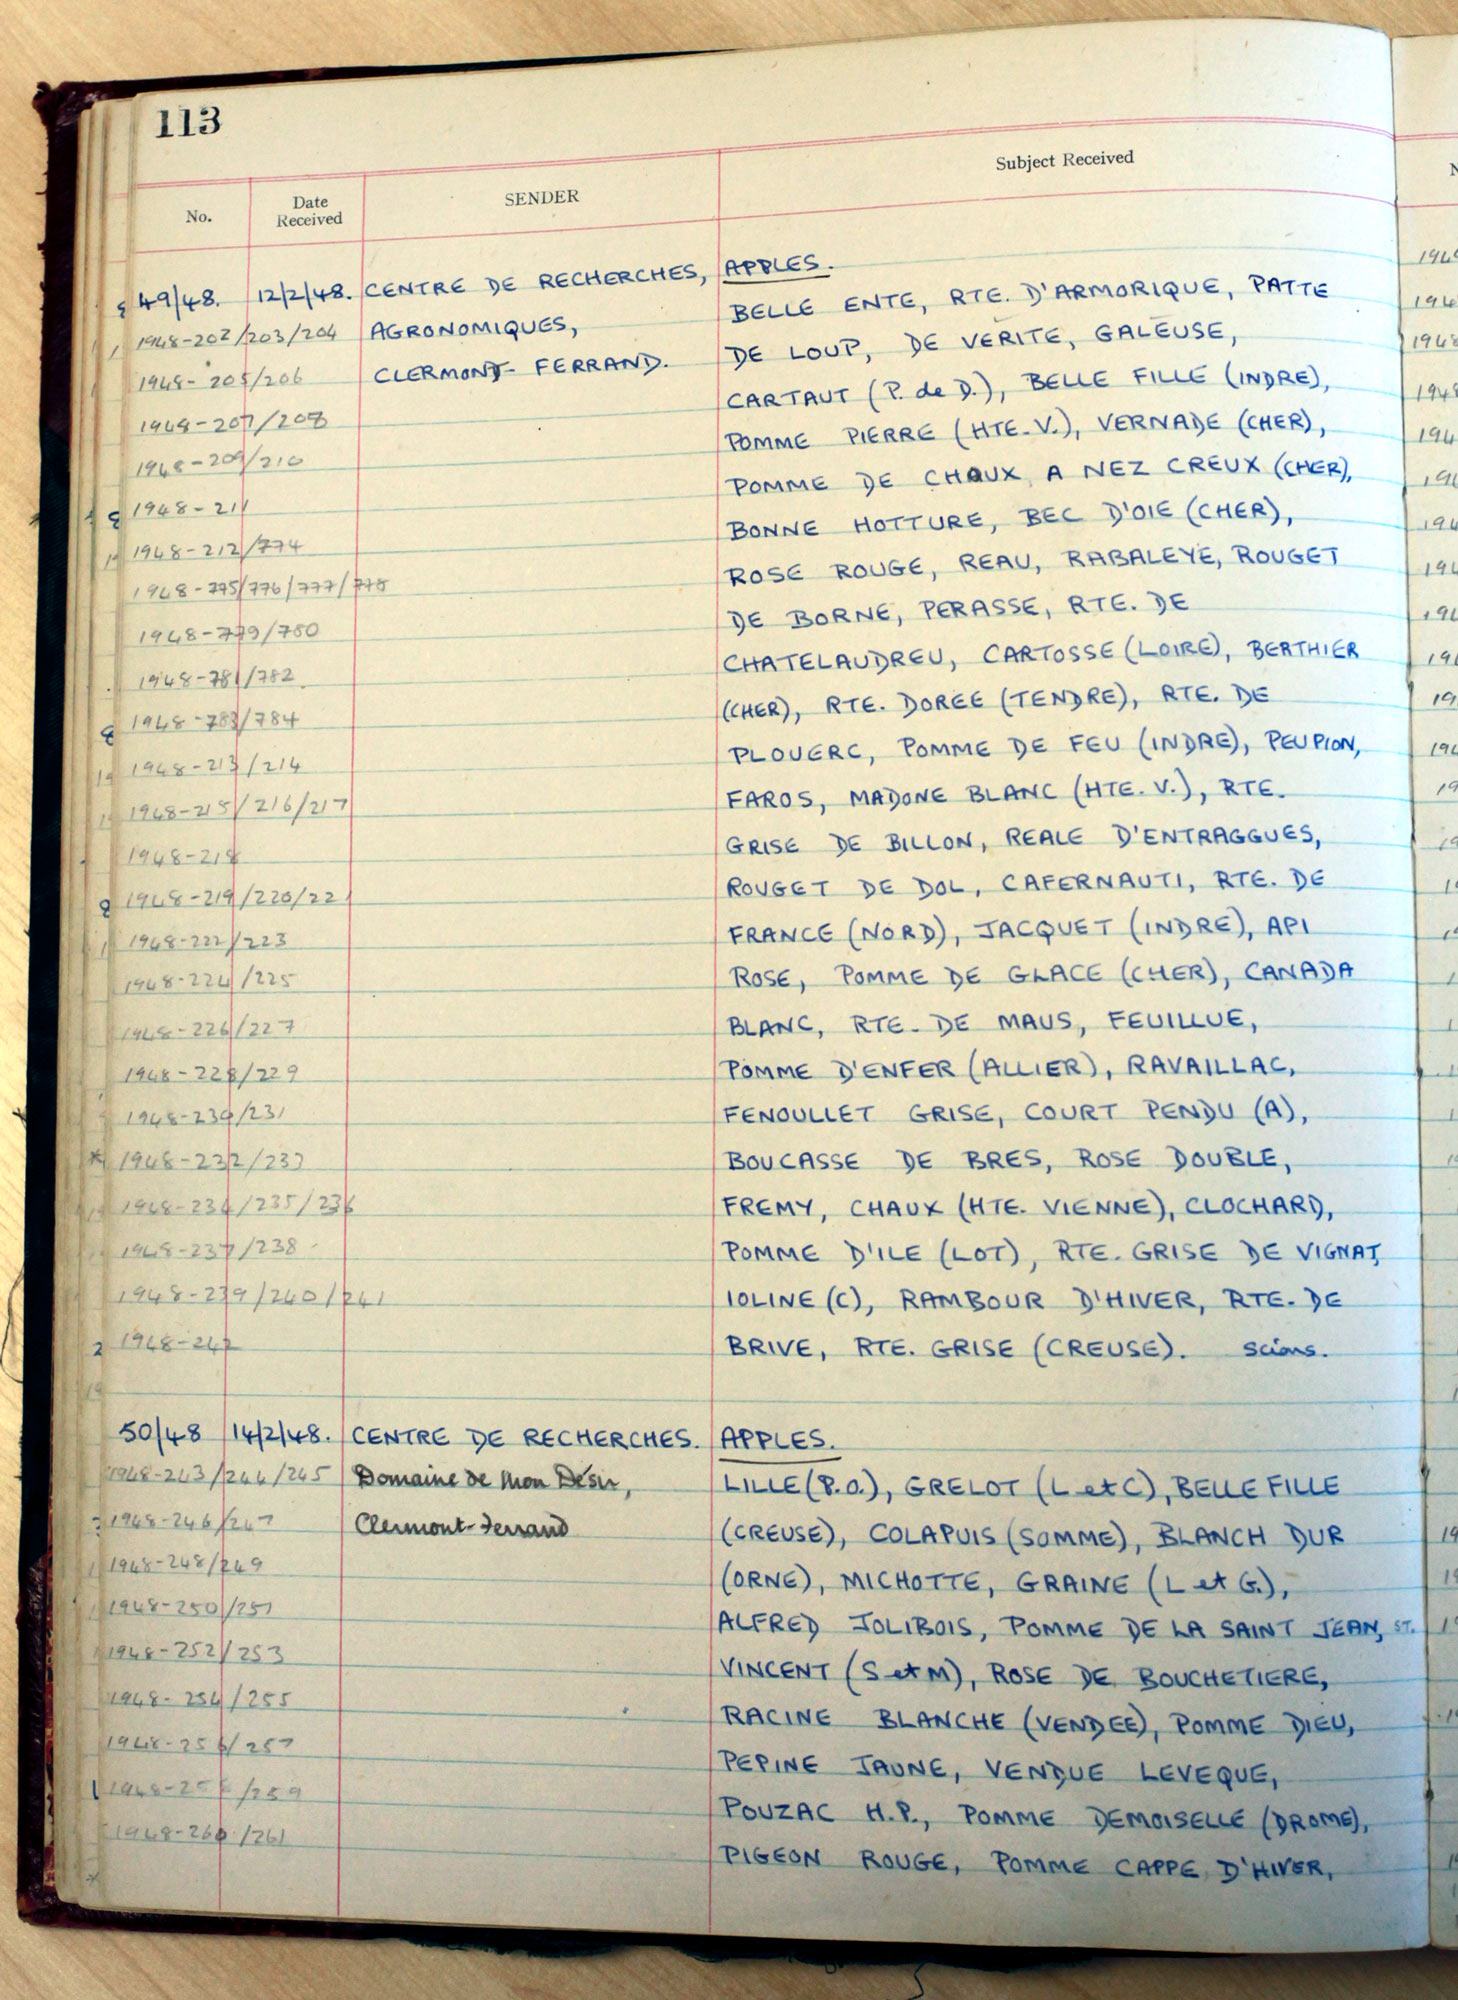 113
No.
Date Received
SENDER
Subject Received
49/48. 12/2/48. CENTRE DE RECHERCHES, APPLES.
1948-202/203/204 AGRONOMIQUES, BELLE ENTE, RTE. D'ARMORIQUE, PATTE
1948-205/206 CLERMONT-FERRAND. DE LOUP, DE VERITE, GALEUSE,
1948-207/208 CARTAUT (P. de D.), BELLE FILLE (INDRE),
1948-209/210 POMME PIERRE (HTE.V.), VERNADE (CHER),
1948-211 POMME DE CHAUX A NEZ CREUX (CHER),
1948-212/774 BONNE HOTTURE, BEC D'OIE (CHER),
1948-775/776/777/778 ROSE ROUGE, REAU, RABALEYE, ROUGET
1948-779/780 DE BORNE, PERASSE, RTE. DE
1948-781/782 CHATELAUDREU, CARTOSSE (LOIRE), BERTHIER
1948-783/784 (CHER), RTE. DOREE (TENDRE), RTE. DE
1948-213/214 PLOUERC, POMME DE FEU (INDRE), PEUPION,
1948-215/216/217 FAROS, MADONE BLANC (HTE. V.), RTE.
1948-218 GRISE DE BILLON, REALE D'ENTRAGGUES,
1948-219/220/221 ROUGET DE DOL, CAFERNAUTI, RTE. DE
1948-222/223 FRANCE (NORD), JACQUET (INDRE), API
1948-224/225 ROSE, POMME DE GLACE (CHER), CANADA
1948-226/227 BLANC, RTE. DE MAUS, FEUILLUE,
1948-228/229 POMME D'ENFER (ALLIER), RAVAILLAC,
1948-230/231 FENOULLET GRISE, COURT PENDU (A),
1948-232/233 BOUCASSE DE BRES, ROSE DOUBLE,
1948-234/235/236 FREMY, CHAUX (HTE. VIENNE), CLOCHARD,
1948-237/238 POMME D'ILE (LOT), RTE. GRISE DE VIGNAT,
1948-239/240/241 IOLINE (C), RAMBOUR D'HIVER, RTE. DE
1948-242 BRIVE, RTE. GRISE (CREUSE). scions.
50/48 14/2/48. CENTRE DE RECHERCHES. APPLES.
1948-243/244/245 Domaine de Mon Désir, LILLE (P.O.), GRELOT (L et C), BELLE FILLE
1948-246/247 Clermont-Ferrand (CREUSE), COLAPUIS (SOMME), BLANCH DUR
1948-248/249 (ORNE), MICHOTTE, GRAINE (L et G.),
1948-250/251 ALFRED JOLIBOIS, POMME DE LA SAINT JEAN, ST.
1948-252/253 VINCENT (S et M), ROSE DE BOUCHETIERE,
1948-254/255 RACINE BLANCHE (VENDEE), POMME DIEU,
1948-256/257 PEPINE JAUNE, VENDUE LEVEQUE,
1948-258/259 POUZAC H.P., POMME DEMOISELLE (DROME),
1948-260/261 PIGEON ROUGE, POMME CAPPE D'HIVER,